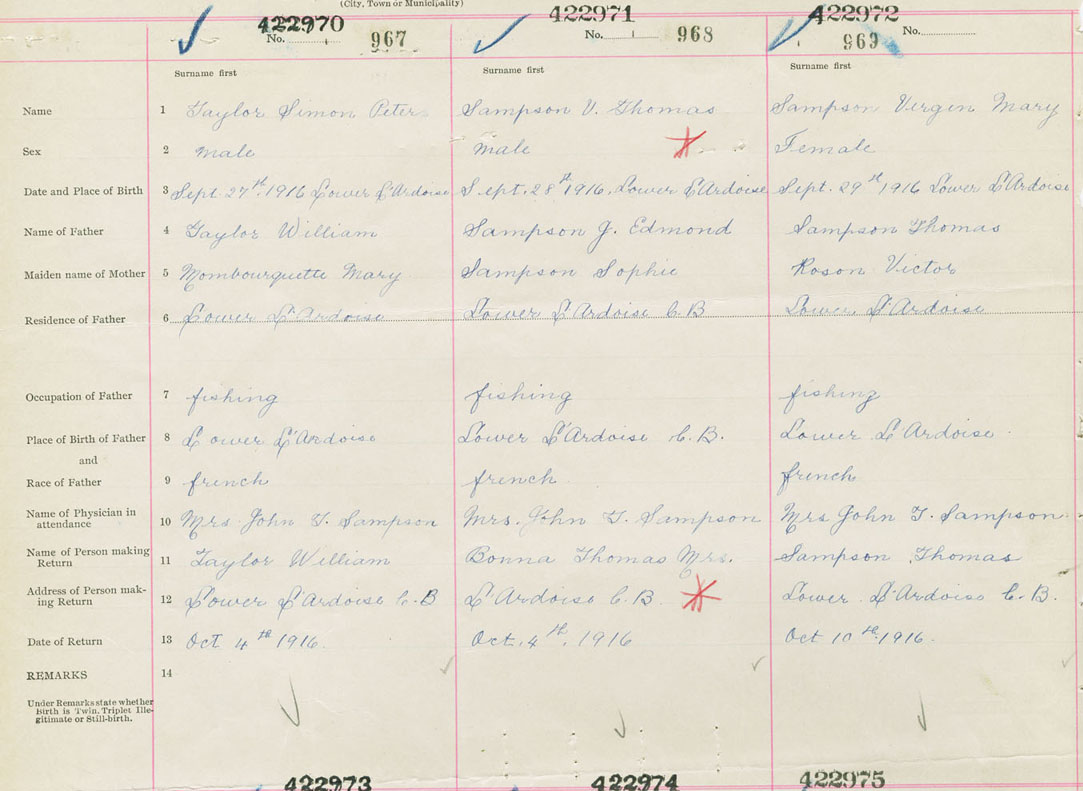 (City, Town or Municipality)
422970 422971 422972
No. 967 No. 968 969 No.
Surname first Surname first Surname first
Name 1 Taylor Simon Peter Sampson V. Thomas Sampson Vergin Mary
Sex 2 Male Male Female
Date and Place of Birth 3 Sept. 27th. 1916 Lower L'Ardoise Sept. 28th 1916. Lower L'Ardoise Sept. 29th 1916 Lower L'Ardoise
Name of Father 4 Taylor William Sampson J. Edmond Sampson Thomas
Maiden name of Mother 5 Mombourquette Mary Sampson Sophie Roson Victor
Residence of Father 6 Lower L'Ardoise Lower L'Ardoise C.B Lower L'Ardoise
Occupation of Father 7 fishing fishing fishing
Place of Birth of Father 8 Lower L'Ardoise Lower L'Ardoise C.B. Lower L'Ardoise
and
Race of Father 9 french french french
Name of Physician in
attendance 10 Mrs John T. Sampson Mrs. John T. Sampson Mrs John T. Sampson
Name of Person making
Return 11 Taylor William Bonna Thomas Mrs. Sampson Thomas
Address of Person mak-
ing Return 12 Lower L'Ardoise C.B L'Ardoise C.B Lower L'Ardoise C.B.
Date of Return 13 Oct 4th 1916. Oct. 4th. 1916 Oct 10th 1916.
REMARKS 14
Under Remarks state whether
Birth is Twin, Triplet Ille-
gitimate or Still-birth.
422973 422974 422975